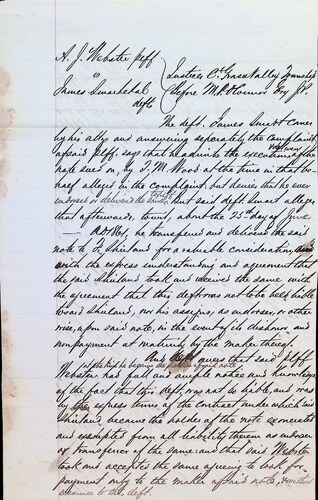 A. J. Webster plff
vs
James Smart et al
deft
Justices Ct Grass Valley Township
Before M. P. O'Connor Esq J.P.
The deft. James Smart comes
by his atty and answering separately the complaint
of said plff, says that he admits the execution of the
note sued on, by T. M. Wood at the time in that be-
half alleged in the complaint, but denies that he ever
endorsed or delivered the same to plff. But said deft Smart alleges
that afterwards, towit, about the 25th day of June
A.D. 1861, he transferred and delivered the said
note to F. Shuland for a valuable consideration,
with the express understanding and agreement that
the said Shuland took and received the same with
the agreement that this deft was not to be held liable
to said Shuland, nor his assigns, as endorser, or other
wise, upon said note, in the event of its dishonor, and
nonpayment at maturity by the maker thereof.
And deft avers that said plff
at the time he became the holder of said note
Webster had full and ample notice and knowledge
of the fact that this deft. was not so liable, and was
by the express terms of the contract under which said
Shuland became the holder of the note exonerated
and exempted from all liability thereon as endorser
or transferer of the same and that said Webster
took and accepted the same agreeing to look for
payment only to the maker of said note, and
recourse to this deft.